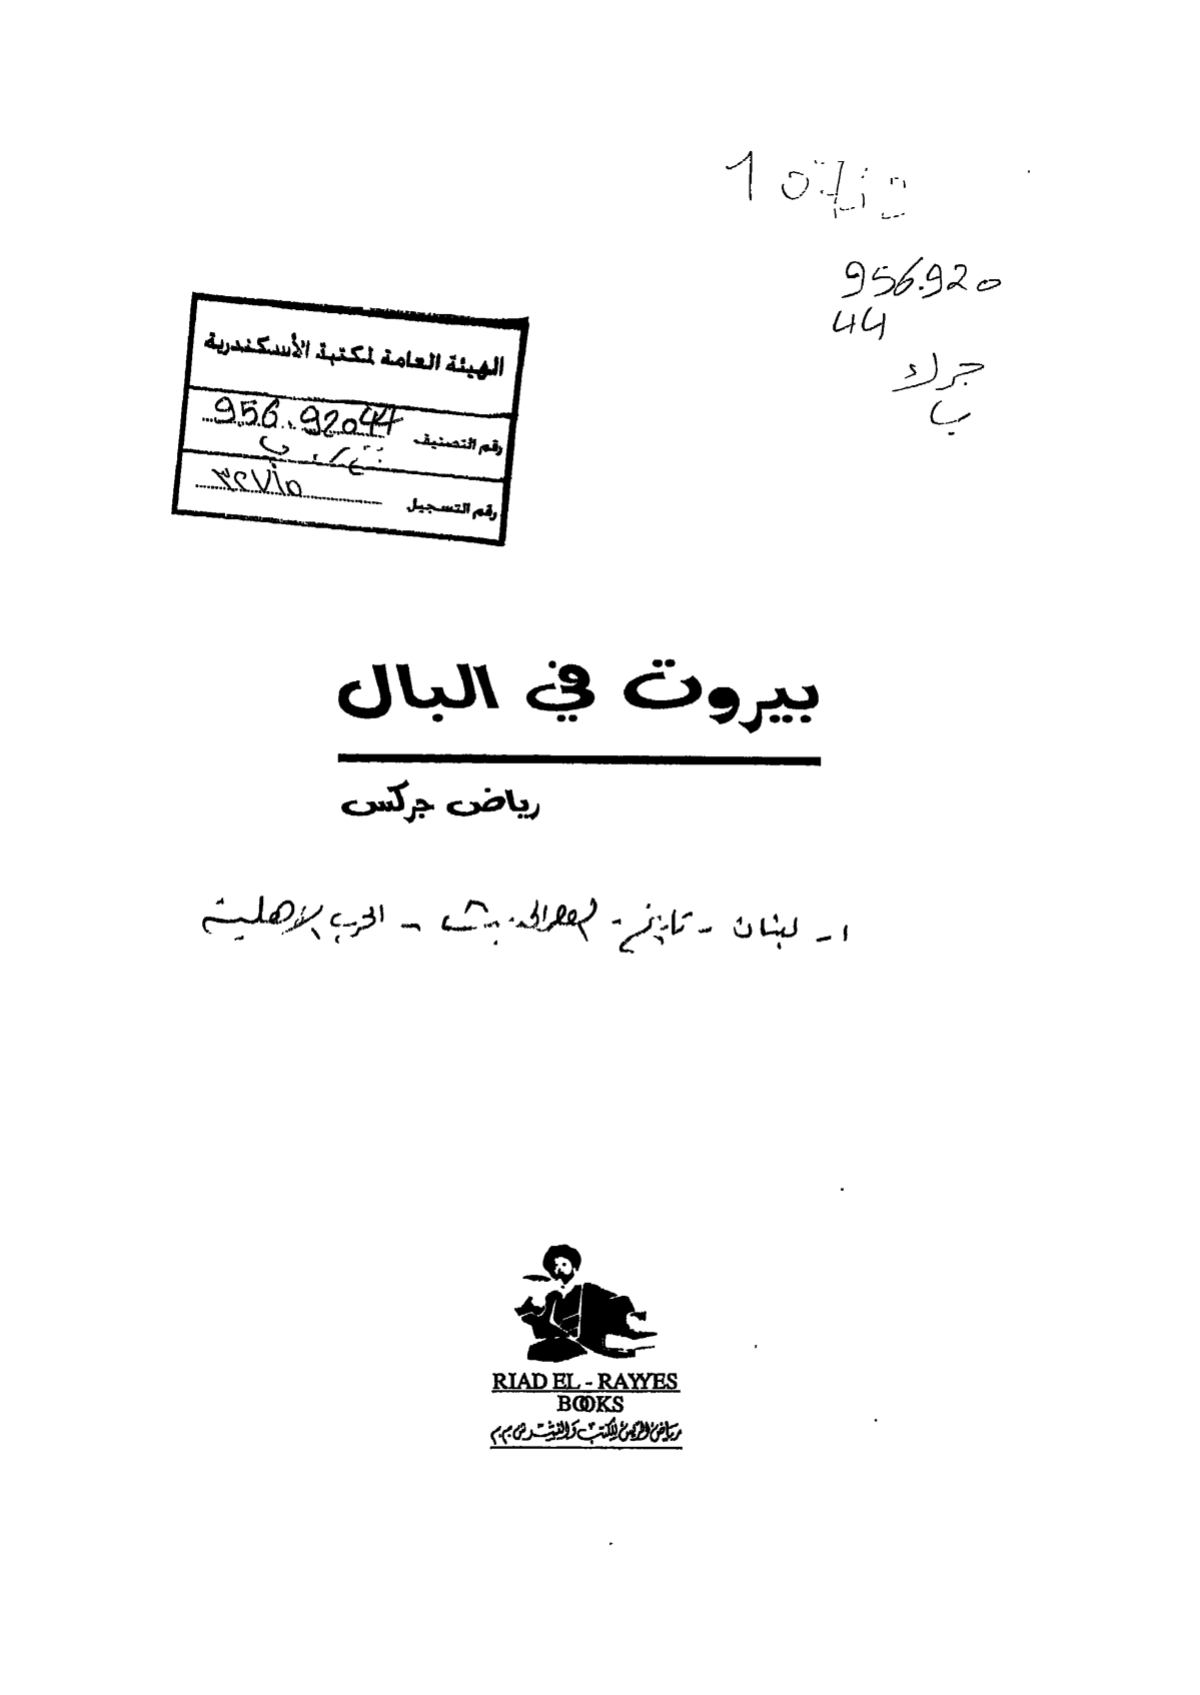 956.920
44
جرك
ب
الهيئة العامة لمكتبة الأسكندرية
رقم التصنيف 956.92044
ب
رقم التسجيل ٣٢٧١٥
بيروت في البال
رياض جركس
١ - لبنان - تاريخ - العصر الحديث - الحرب الأهلية
RIAD EL - RAYYES
BOOKS
رياض الريس للكتب والنشر